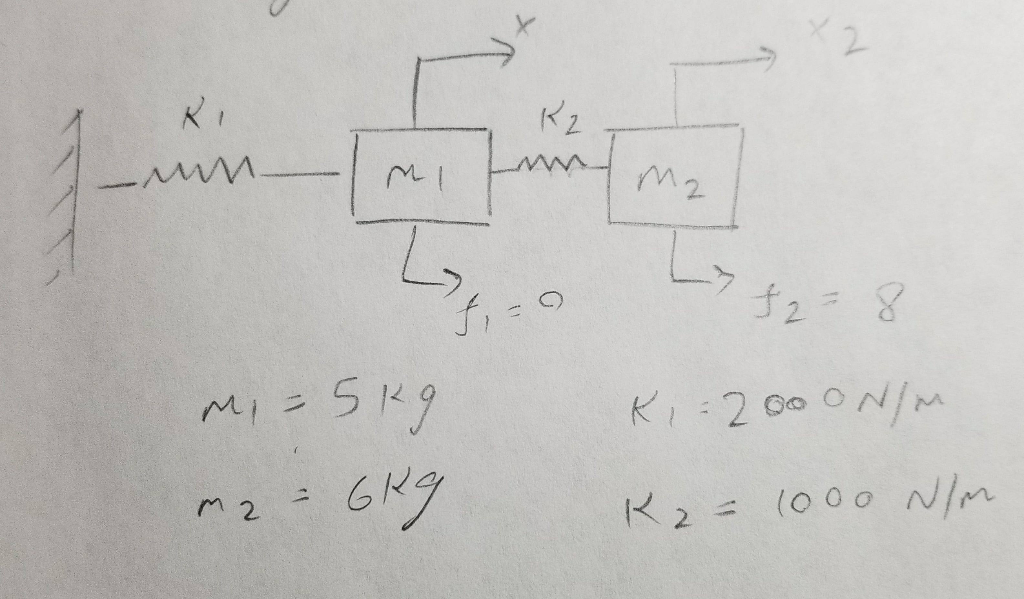 x
x2
K1
K2
M1
m2
f1 = 0
f2 = 8
M1 = 5 Kg
K1 = 2000 N/M
m2 = 6Kg
K2 = 1000 N/m